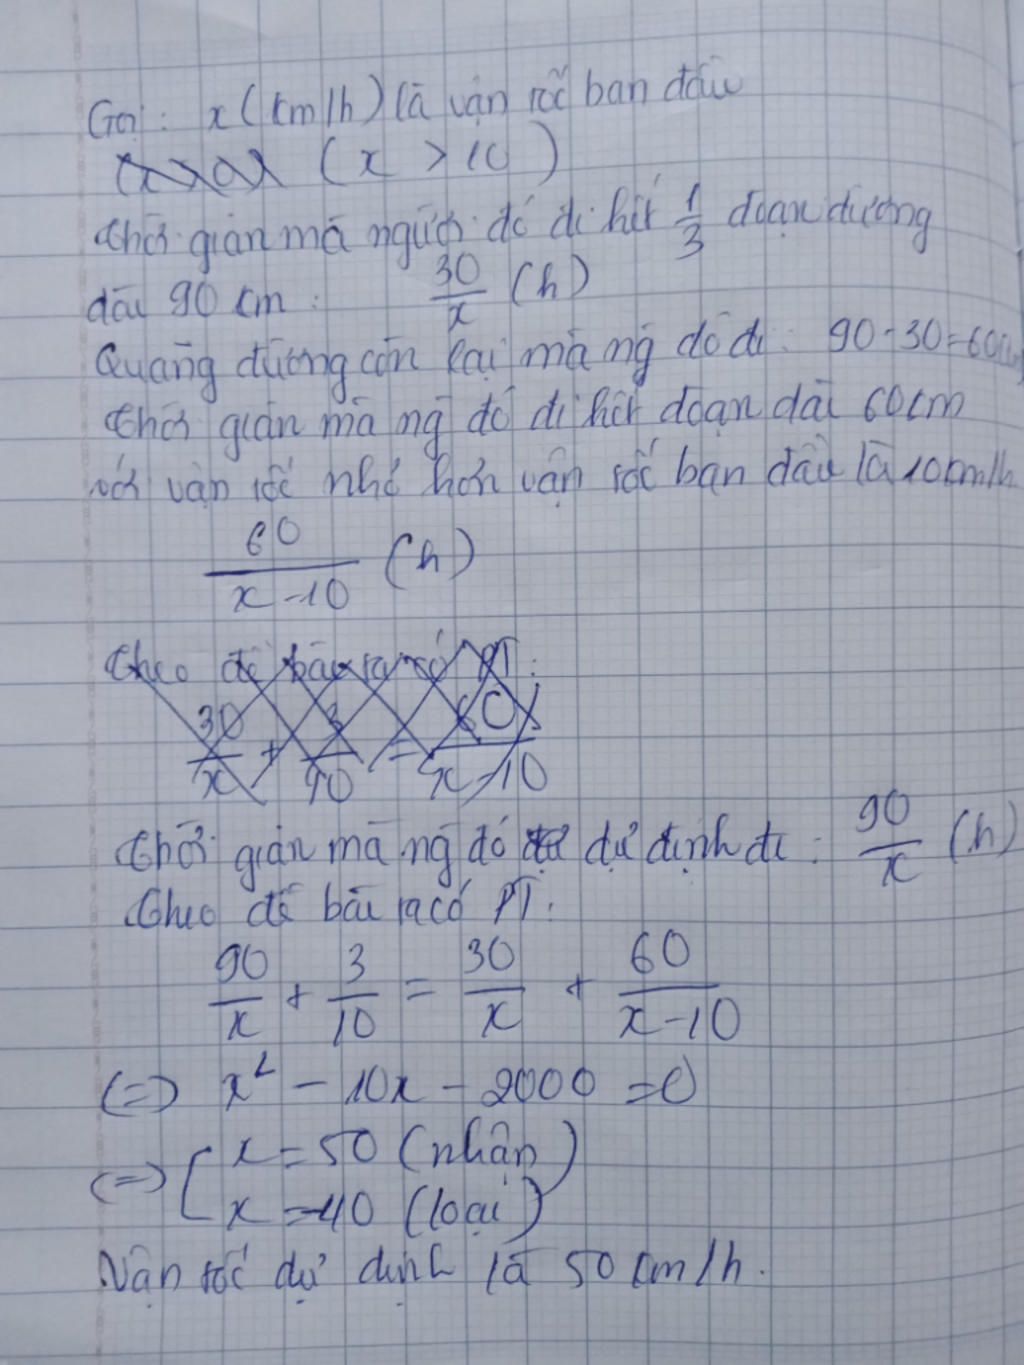 Gọi: x (km/h) là vận tốc ban đầu
(x > 10)
Thời gian mà người đó đi hết 1/3 đoạn đường
dài 90 km: 30/x (h)
Quãng đường còn lại mà ng đó đi: 90-30=60(km)
Thời gian mà ng đó đi hết đoạn dài 60km
với vận tốc nhỏ hơn vận tốc ban đầu là 10km/h
60/(x-10) (h)
Theo đề bài ra có PT:
30/x + 3/10 = 60/(x-10)
Thời gian mà ng đó dự định đi: 90/x (h)
Theo đề bài ra có PT:
90/x + 3/10 = 30/x + 60/(x-10)
(=) x² - 10x - 2000 = 0
(=) [ x = 50 (nhận)
x = -40 (loại)
Vận tốc dự định là 50 km/h.